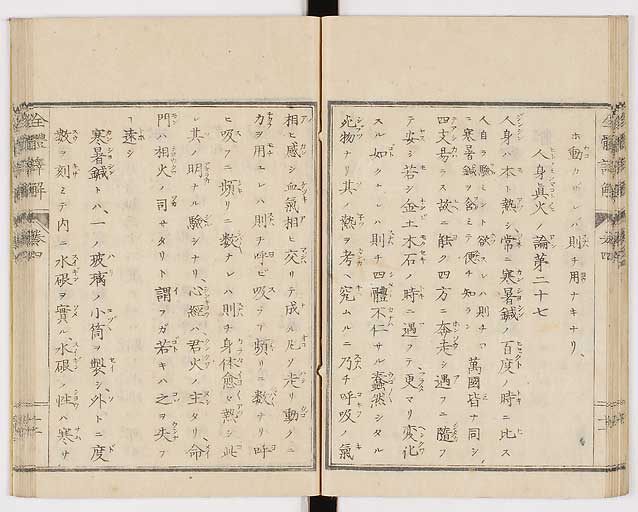 ホ動カザレバ則チ用ナキナリ、
人身眞火ノ論第二十七
人身ハ本ト熱シ常ニ寒暑鍼ノ百度ノ時ニ比ス
人自ラ驗ミント欲スレハ則チ
ニ寒暑鍼ヲ
テ便チ知ラン 萬國皆ナ同シ
四支易ラス故ニ能ク四方ニ奔走シ遇フニ隨フ
テ安シ若シ金土木石ノ時ニ遇フテ更マリ變化
スル如クナレハ則チ四體不仁サル蠢然シタル
死物ナリ其ノ熱ヲ考ヘ究ムルニ乃チ呼吸ノ氣
相ヒ感シ血氣相ヒ交リテ成ル凡ソ走リ動クニ
力ヲ用ユレハ則チ呼ビ吸フ頻リニ數ナリ呼
ヒ吸フニ頻リニ數ナレハ則チ身体愈々熱シ此
レ其ノ明ナル驗シナリ、心經ハ君火ノ主タリ、命
門ハ相火ノ司サタリト謂フガ若キハ之ヲ失フ
ヿ遠シ
寒暑鍼トハ、一ノ玻璃ノ小筒ヲ製シ、外トニ度
數ヲ刻ミテ内ニ水硍ヲ實ル水硍ノ性ハ寒サ
全體譯解 卷四